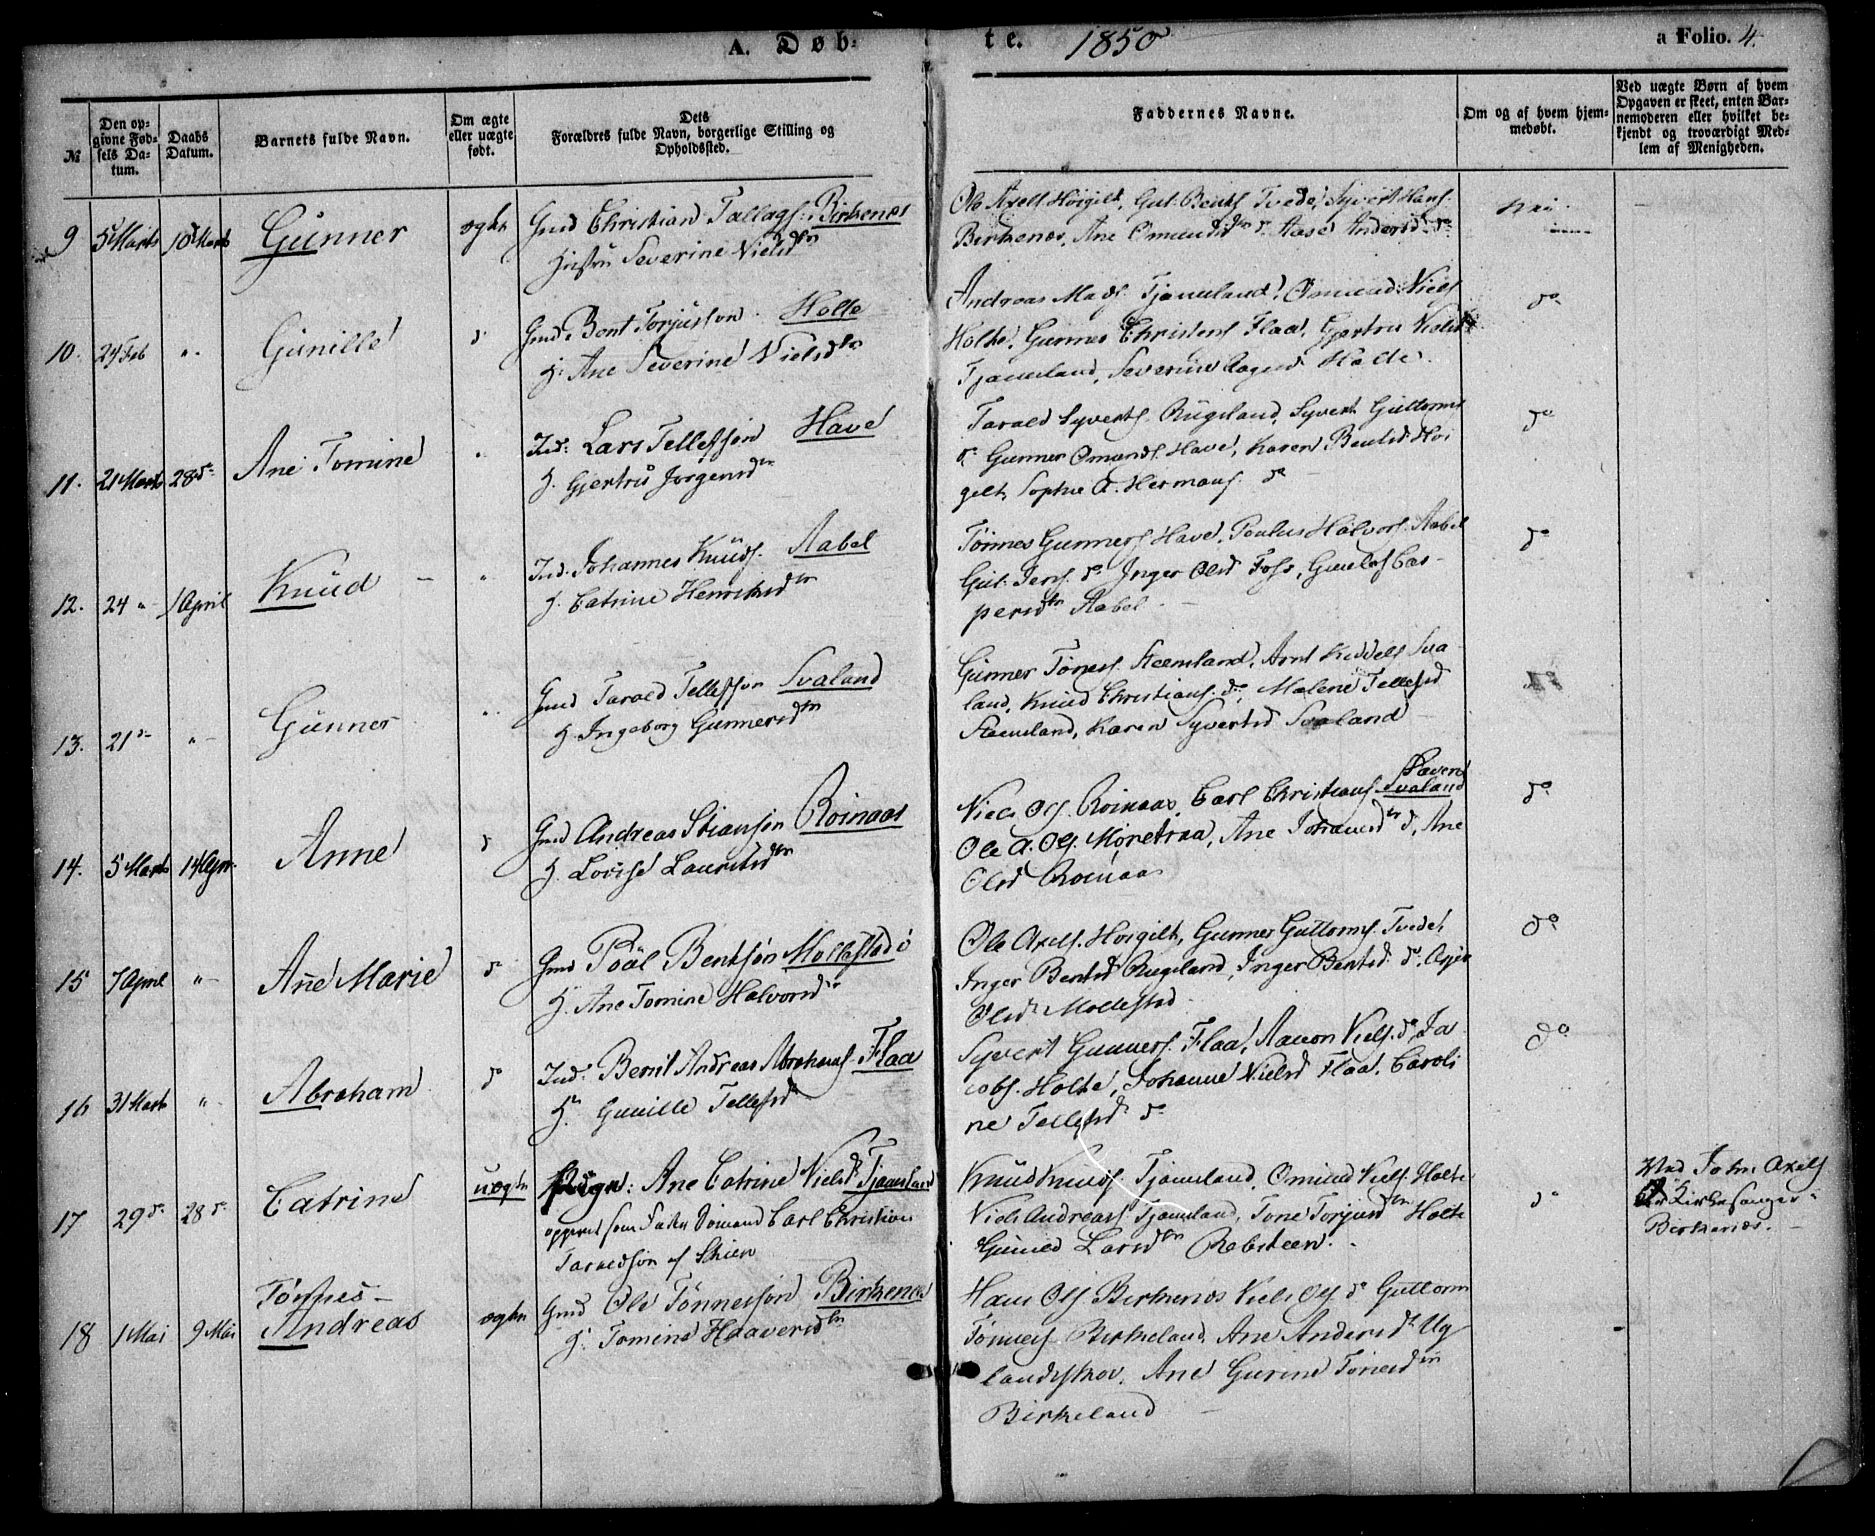 A. Døb-
te. 1850
a Folio. 4.
№
Den opgivne Fødsels Datum.
Daabs Datum.
Barnets fulde Navn.
Om ægte eller uægte født.
Dets Forældres fulde Navn, borgerlige Stilling og Opholdssted.
Faddernes Navne.
Om og af hvem hjemmedøbt.
Ved uægte Børn af hvem Opgaven er skeet, enten Barnemoderen eller hvilket bekjendt og troværdigt Medlem af Menigheden.
9 5 Marts 10 Marts Gunner ægte Gmd Christian Tallags. Birkenes
Hustru Severine Nielsdtr
Ole Axels Høigilt, Gut. Bents Tvede, Syvert Hans.
Birkenes, Ane Omundsdtr do. Aase Andersd. do
Nei.
10. 24 Feb ". Gunille do Gmd. Bent Torjusson Holte
H. Ane Severine Nielsdtr
Andreas Mads. Tjomeland, Omund Niels
Holte, Gunner Christens Flaa, Gjertru Nielsd
Tjomeland, Severine Aagesd Holte.
do
11. 21 Marts 28 do Ane Tomine " Ind: Lars Tellefsøn Have
H. Gjertru Jørgensdtr
Tarald Syverts. Rugsland, Syvert Guttorms
do Gunner Omunds. Have, Karen Bentsd Høi
gilt, Sophie A. Hermans. do
do
12. 24 " 1 April Knud " Ind. Johannes Knuds. Aabel
H. Catrine Henriksdtr
Tønnes Gunners Have, Paulus Halvors. Aabel
Gut. Jens. do Inger Olsd Foss, Gunild Cas-
persdtr Aabel
do
13. 21 do " Gunner " Gmd Tarald Tellefsøn Svaland
H. Ingeborg Gunnersdtr
Gunner Tønes. Steensland, Arnt Kiddels Sva
land, Knud Christians. do, Malene Tellefsd
Steensland, Karen Syvertsd Svaland
14. 5 Marts 14 Apr. Anne do Gmd Andreas Stiansøn Roinaas
H. Lovise Lauritsdtr
Niels Ols. Roinaas, Carl Christians. Svaland
Ole A. Ols. Monetraa, Ane Johansdtr do, Ane
Olsd Roinaas
do
15 7 April " Ane Marie do Gmd Poäl Bentsøn Mollestad
H. Ane Tomine Halvorsdtr
Ole Axels. Høigilt, Gunner Guttorms. Tvede,
Inger Bentsd Rugsland, Inger Bentsd. do,
Olsd Mollestad
do
16 31 Marts " Abraham do Ind. Bernt Andreas Abrahams. Flaa
H. Gunille Tellefsd
Syvert Gunners. Flaa, Aanon Niels. do Ja
cobs. Holte, Johanne Nielsd Flaa. Caroli
ne Tellefsd do
do
17 29 do 28 do Catrine uægte Pige: Ane Catrine Nielsd Tjomeland
opgivet som Fader Sömand Carl Christian
Taraldsøn af Skien
Knud Knuds. Tjomeland, Omund Niels. Holte
Niels Andreass Tjomeland, Tone Torjusdtr Holte
Gunild Larsdtr Rabsteen.
do
Ved John Axels
Kirkesanger
Birkenes.
18 1 Mai 9 Mai Tønnes-
Andreas ægte Gmd Ole Tønnessøn Birkenes
H. Tomine Haaversdtr
Hans Ols Birkenes Niels Ols do Guttorm
Tønnes Birkeland, Ane Andersd Ug
landsskov, Ane Gurine Tønesdtr
Birkeland